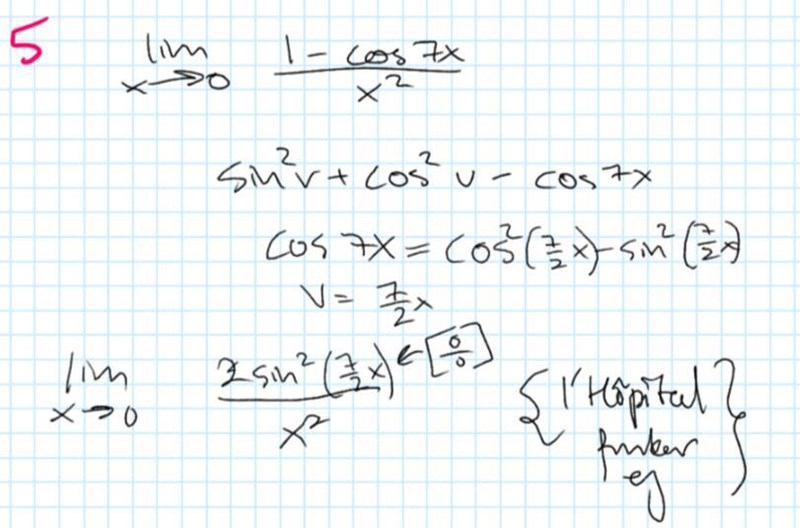 5
lim x→0 (1 - cos 7x) / x²
sin²v + cos²v - cos 7x
cos 7x = cos²(7/2 x) - sin²(7/2 x)
v = 7/2 x
lim x→0 2 sin²(7/2 x) / x² ← [0/0]
{l'Hôpital
funker
ej}